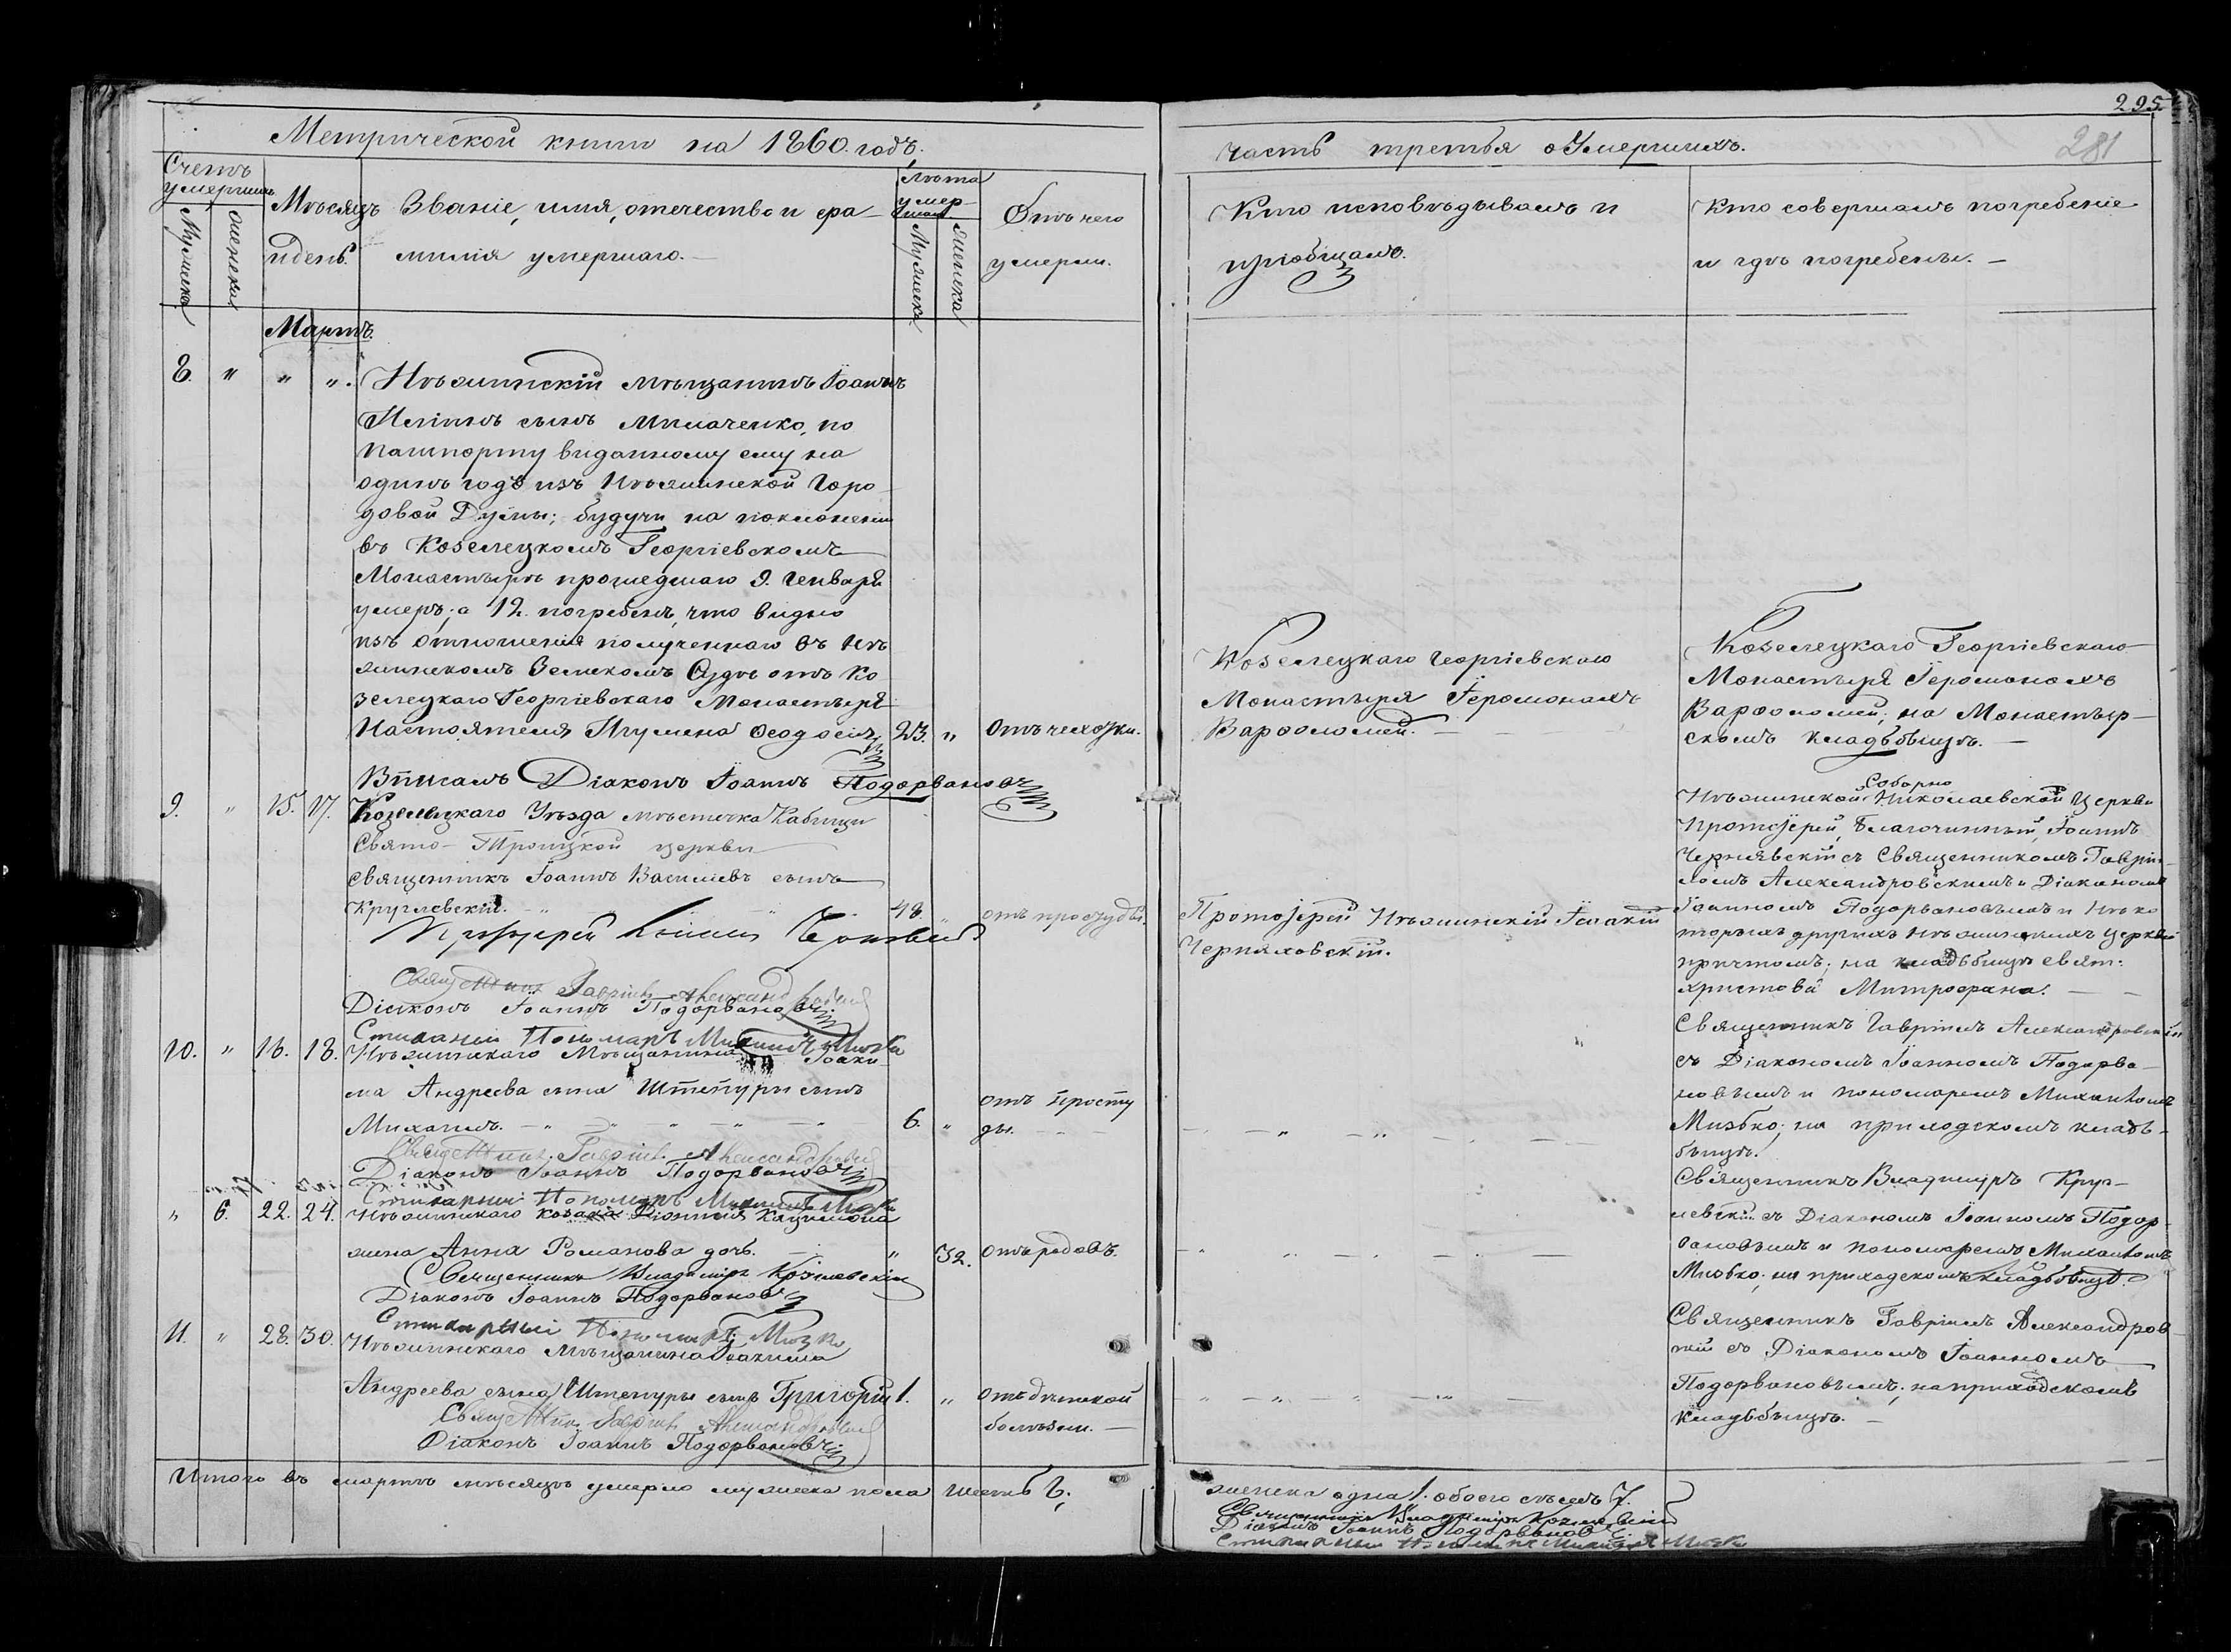 295.
281
Метрической книги на 1860. годъ.
Счетъ умершихъ
Мужеска
Женска
Мѣсяцъ и день.
Званіе, имя, отечество и фа-
милія умершаго.
Лѣта умер-
шаго
Мужеска
Женска
Отъ чего
умерли.
Мартъ.
8. " " ". Нѣжинскій мѣщанинъ Іоаннъ
сынъ Милаченко, по
пашпорту виданному ему на
одинъ годъ изъ Нѣжинской Горо-
довой Думы; будучи на поклоненіи
въ Козелецкомъ Георгіевскомъ
Монастырѣ прошедшаго 9. Генваря
умеръ; а 12. погребенъ, что видно
изъ отношенія полученнаго въ Нѣ-
жинскомъ Земскомъ Судѣ отъ Ко-
зелецкаго Георгіевскаго Монастыря
Настоятеля Игумена Ѳеодосія 23. " Отъ чехотки.
Вписалъ Діаконъ Іоаннъ Подорвановъ
9. " 15. 17. Козелецкаго Уѣзда мѣстечка Кабищи
Свято-Троицкой церкви
Священникъ Іоаннъ Василіевъ сынъ
Круглевскій. 48. " отъ простуды.
Протоіерей
Священникъ Гавріилъ Александровскій
Діаконъ Іоаннъ Подорвановъ
Стихарный Пономарь Михаилъ Мизко
10. " 16. 18. Нѣжинскаго Мѣщанина Іоаки-
ма Андреева сына Штепуры сынъ
Михаилъ. 6. " отъ просту
ды.
Священникъ Гавріилъ Александровскій
Діаконъ Іоаннъ Подорвановъ
Стихарный Пономарь Михаилъ Мизко
" 6. 22. 24. Нѣжинскаго козака Діонисія
жена Анна Романова дочь. " 32. Отъ родовъ.
Священникъ Владиміръ Круглевскій
Діаконъ Іоаннъ Подорвановъ
Стихарный Пономарь Мизко
11. " 28. 30. Нѣжинскаго Мѣщанина Іоакима
Андреева сына Штепуры сынъ Григорій 1. " Отъ дѣтской
болѣзни.
Священникъ Гавріилъ Александровскій
Діаконъ Іоаннъ Подорвановъ
Итого въ мартѣ мѣсяцѣ умерло мужеска пола шесть 6;
часть третья о Умершихъ.
Кто исповѣдывалъ и
пріобщалъ.
Кто совершалъ погребеніе
и гдѣ погребены.
Козелецкаго Георгіевскаго
Монастыря Іеромонахъ
Варѳоломей.
Козелецкаго Георгіевскаго
Монастыря Іеромонахъ
Варѳоломей; на Монастыр-
скомъ кладъбѣщѣ.
Протоіерей Нѣжинскій Іоакій
Черняховскій.
Соборно
Нѣжинской Николаевской Церкви
Протоіерей, Благочинный, Іоаннъ
Чернявскій съ Священникомъ Гаврі-
иломъ Александровскимъ и Діакономъ
Іоанномъ Подорвановымъ и Нѣко
торыхъ другихъ Нѣжинскихъ Церквей
причтомъ; на кладъбищѣ свят:
христова Митрофана.
Священникъ Гавріилъ Александровскій
съ Діакономъ Іоанномъ Подорва-
новымъ и пономаремъ Михаиломъ
Мизько; на приходскомъ кладъ-
бищѣ.
Священникъ Владиміръ Круг-
левскій съ Діакономъ Іоанномъ Подор-
вановымъ и пономаремъ Михаиломъ
Мизько; на приходскомъ кладьбищѣ.
Священникъ Гавріилъ Александров-
кій съ Діакономъ Іоанномъ
Подорвановымъ; на приходскомъ
кладьбищѣ.
женска одна 1. обоего съемъ 7.
Священникъ Владиміръ Круглевскій
Діаконъ Іоаннъ Подорвановъ
Стихарный Пономарь Михаилъ Мизко